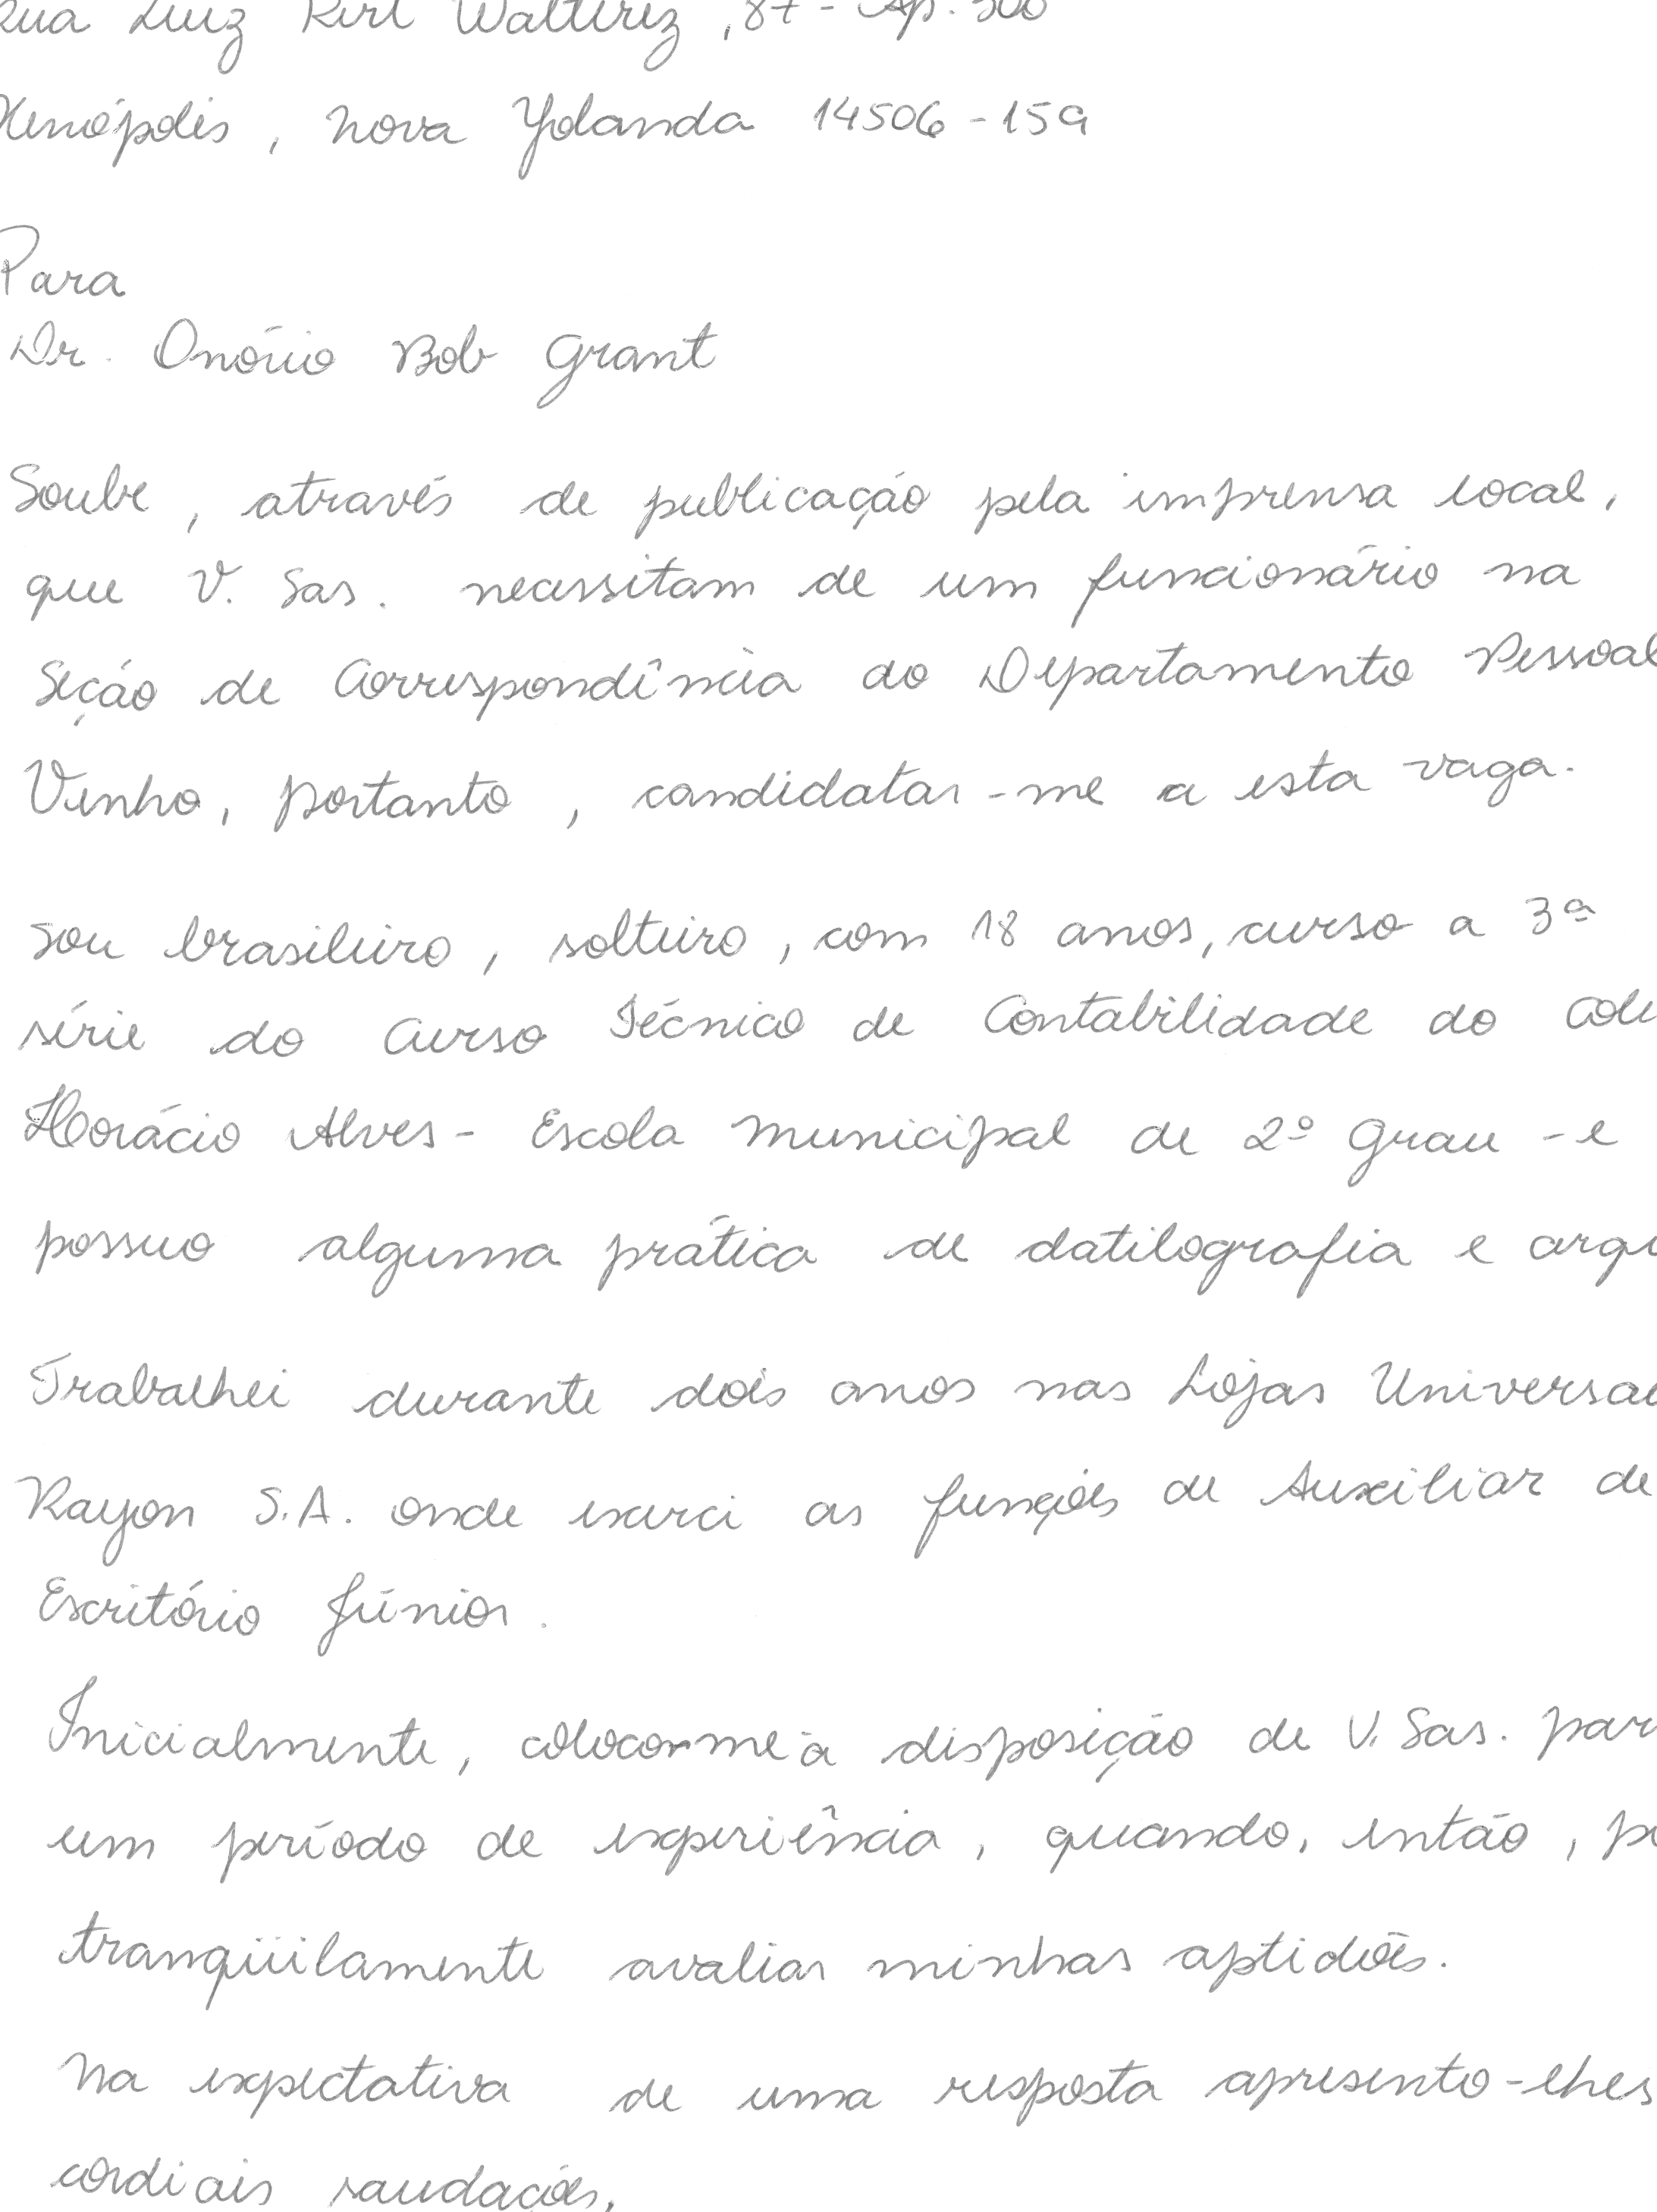 Rua Luiz Kirl Walterez, 87 - Ap. 300
Xenópolis, Nova Yolanda 14506-159
Para
Dr. Onório Bob Grant
Soube, através de publicação pela imprensa local,
que V. Sas. necessitam de um funcionário na
Seção de Correspondência do Departamento Pessoal
Venho, portanto, candidatar-me a esta vaga.
Sou brasileiro, solteiro, com 18 anos, curso a 3ª
série do Curso Técnico de Contabilidade do Colé
Horácio Alves - Escola Municipal de 2º Grau - e
possuo alguma prática de datilografia e arqu
Trabalhei durante dois anos nas Lojas Universa
Rayon S.A. onde exerci as funções de Auxiliar de
Escritório Júnior.
Inicialmente, coloco-me à disposição de V. Sas. par
um período de experiência, quando, então, p
tranqüilamente avaliar minhas aptidões.
Na expectativa de uma resposta apresento-lhes
cordiais saudações,